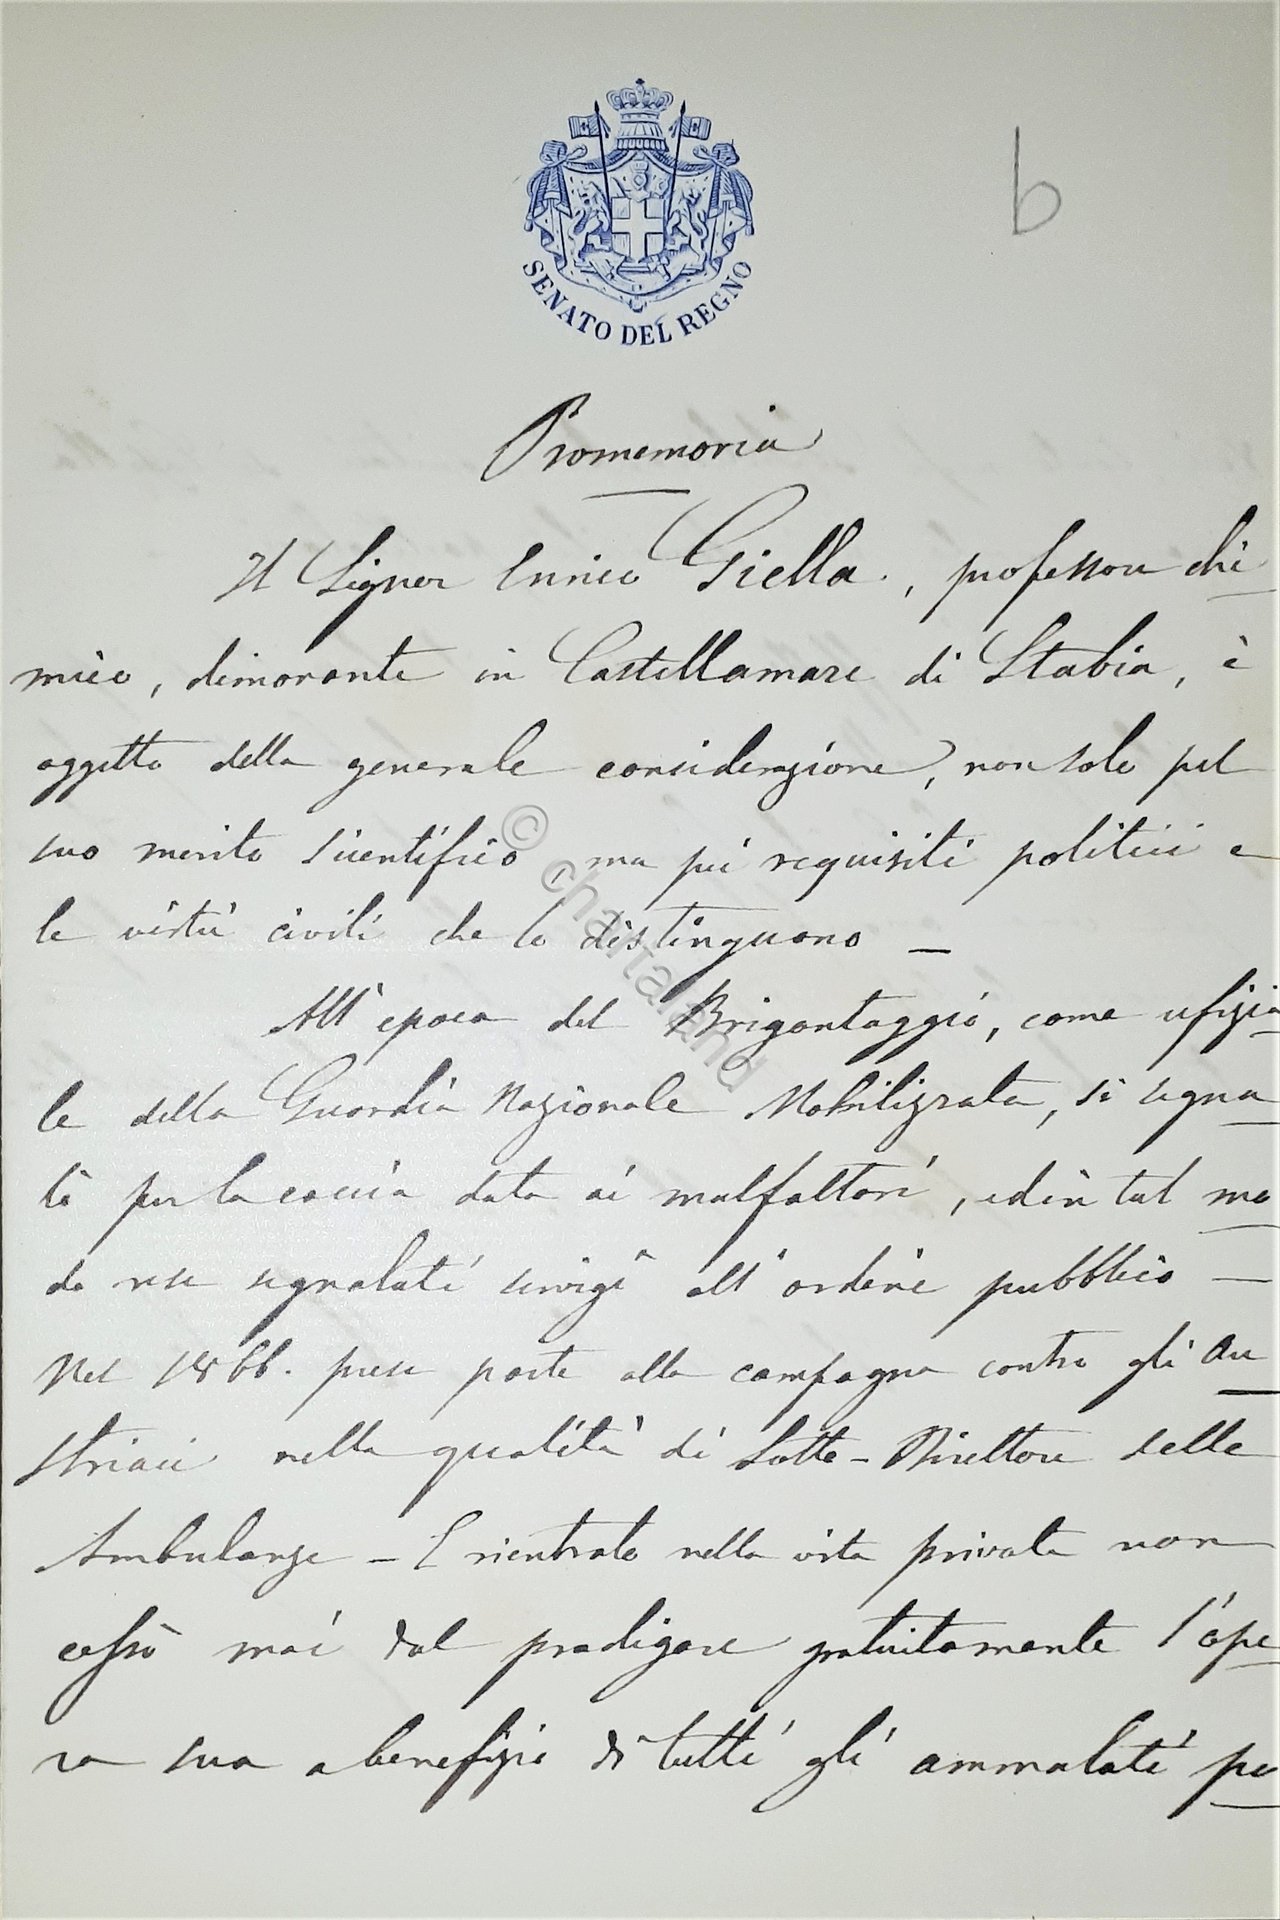 b
SENATO DEL REGNO
Promemoria
Il Signor Enrico Giella., professore chi
mico, dimorante in Castellamare di Stabia, è
oggetto della generale considerazione, non solo pel
suo merito scientifico ma pei requisiti politici e
le virtù civili che lo distinguono —
All'epoca del Brigantaggio, come ufizia
le della Guardia Nazionale Mobilizzata, si segna
lò per la caccia data ai malfattori, ed in tal mo
do rese segnalati servigi all'ordine pubblico —
Nel 1866. prese parte alla campagna contro gli Au
striaci nella qualità di Sotto-Direttore delle
Ambulanze — E rientrato nella vita privata non
cessò mai dal prodigare gratuitamente l'ope
ra sua a benefizio di tutti gli ammalati po
© chartaland